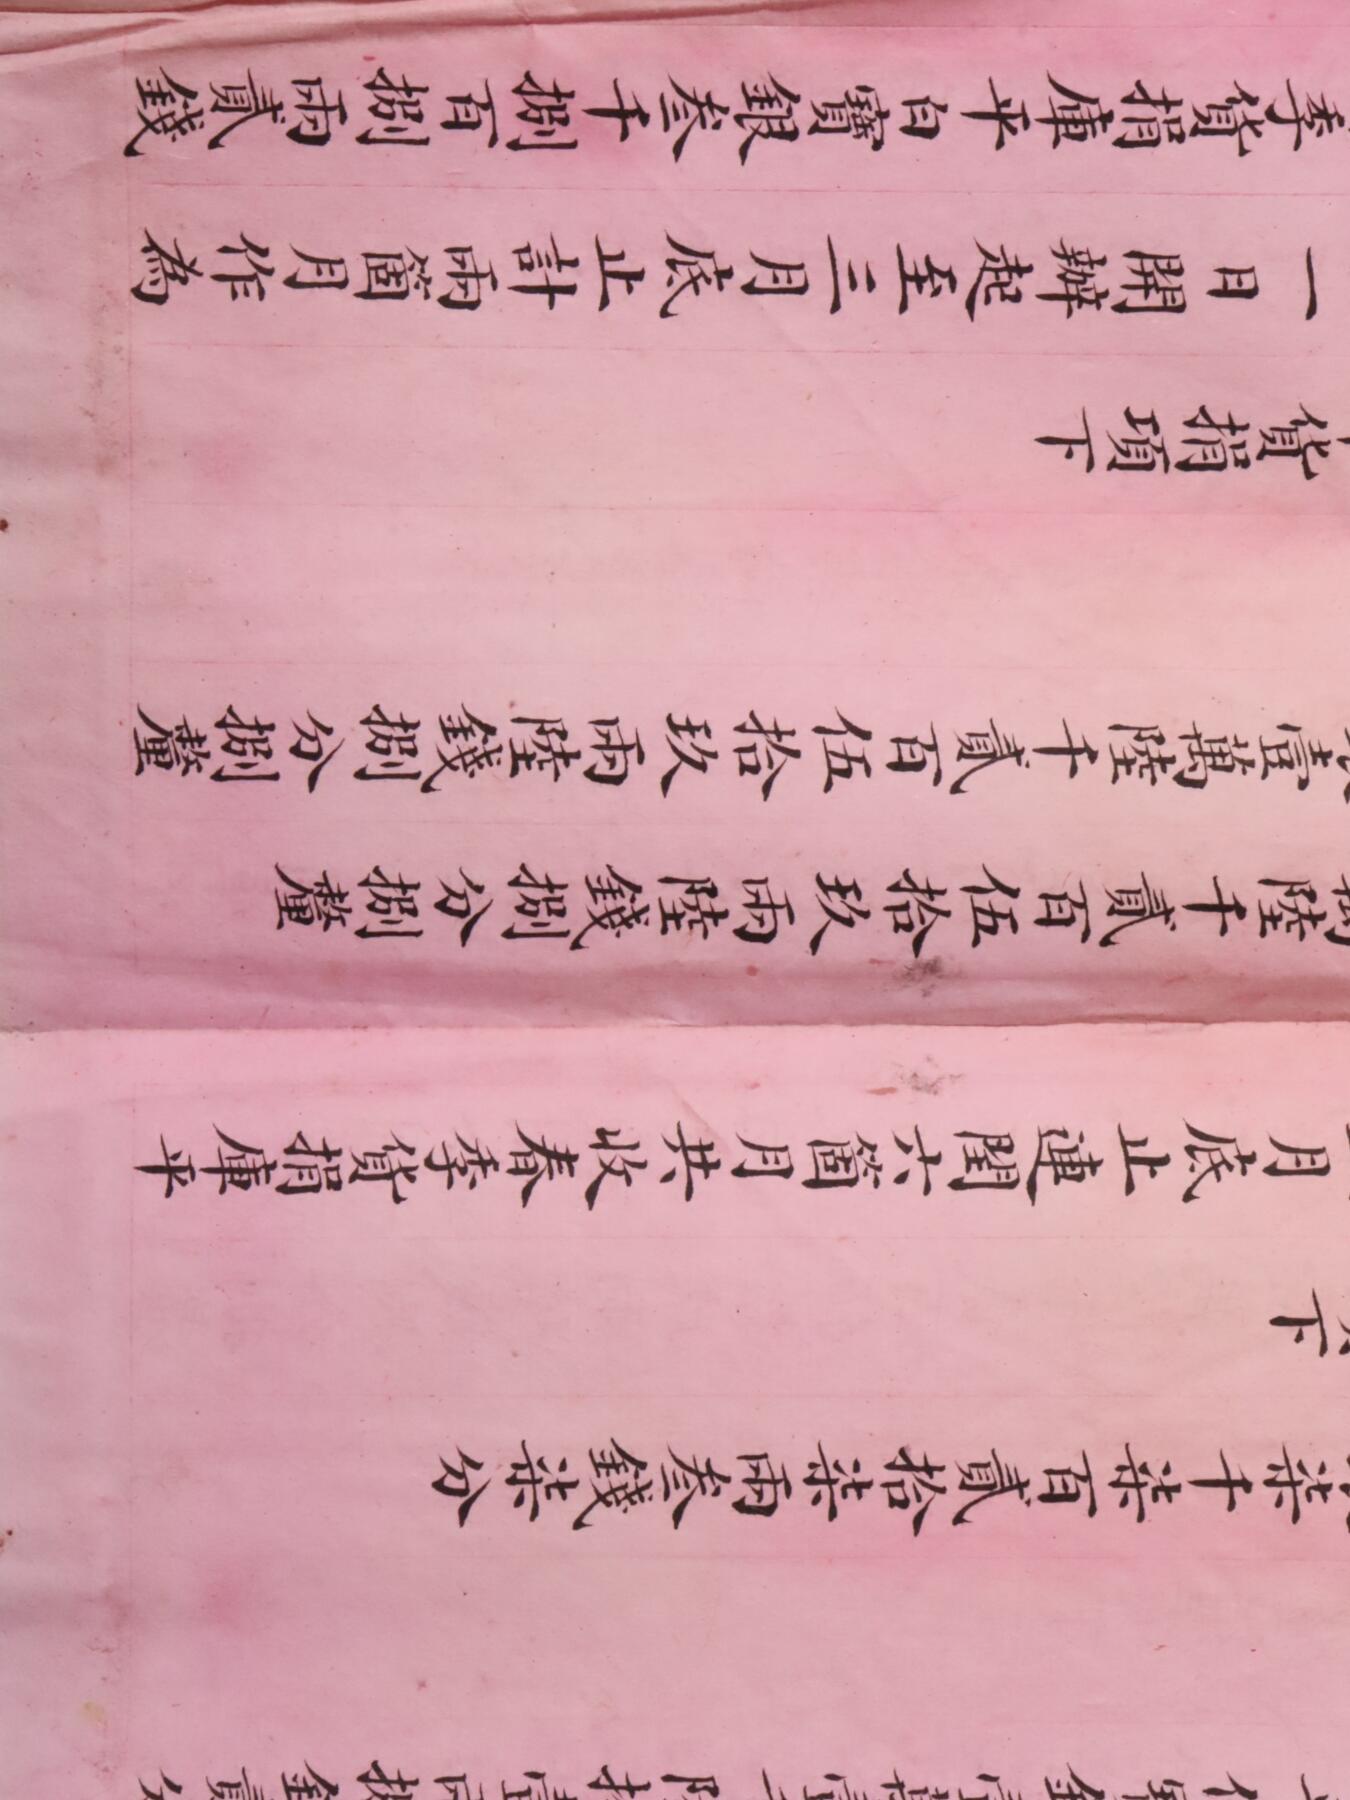 柒千柒百貳拾柒兩叁錢柒分
下
月底止連閏六箇月共收春季貨捐庫平
陸千貳百伍拾玖兩陸錢捌分捌釐
壹萬陸千貳百伍拾玖兩陸錢捌分捌釐
貨捐項下
一日開辦起至三月底止計兩箇月作為
季貨捐庫平白寶銀叁千捌百捌兩貳錢